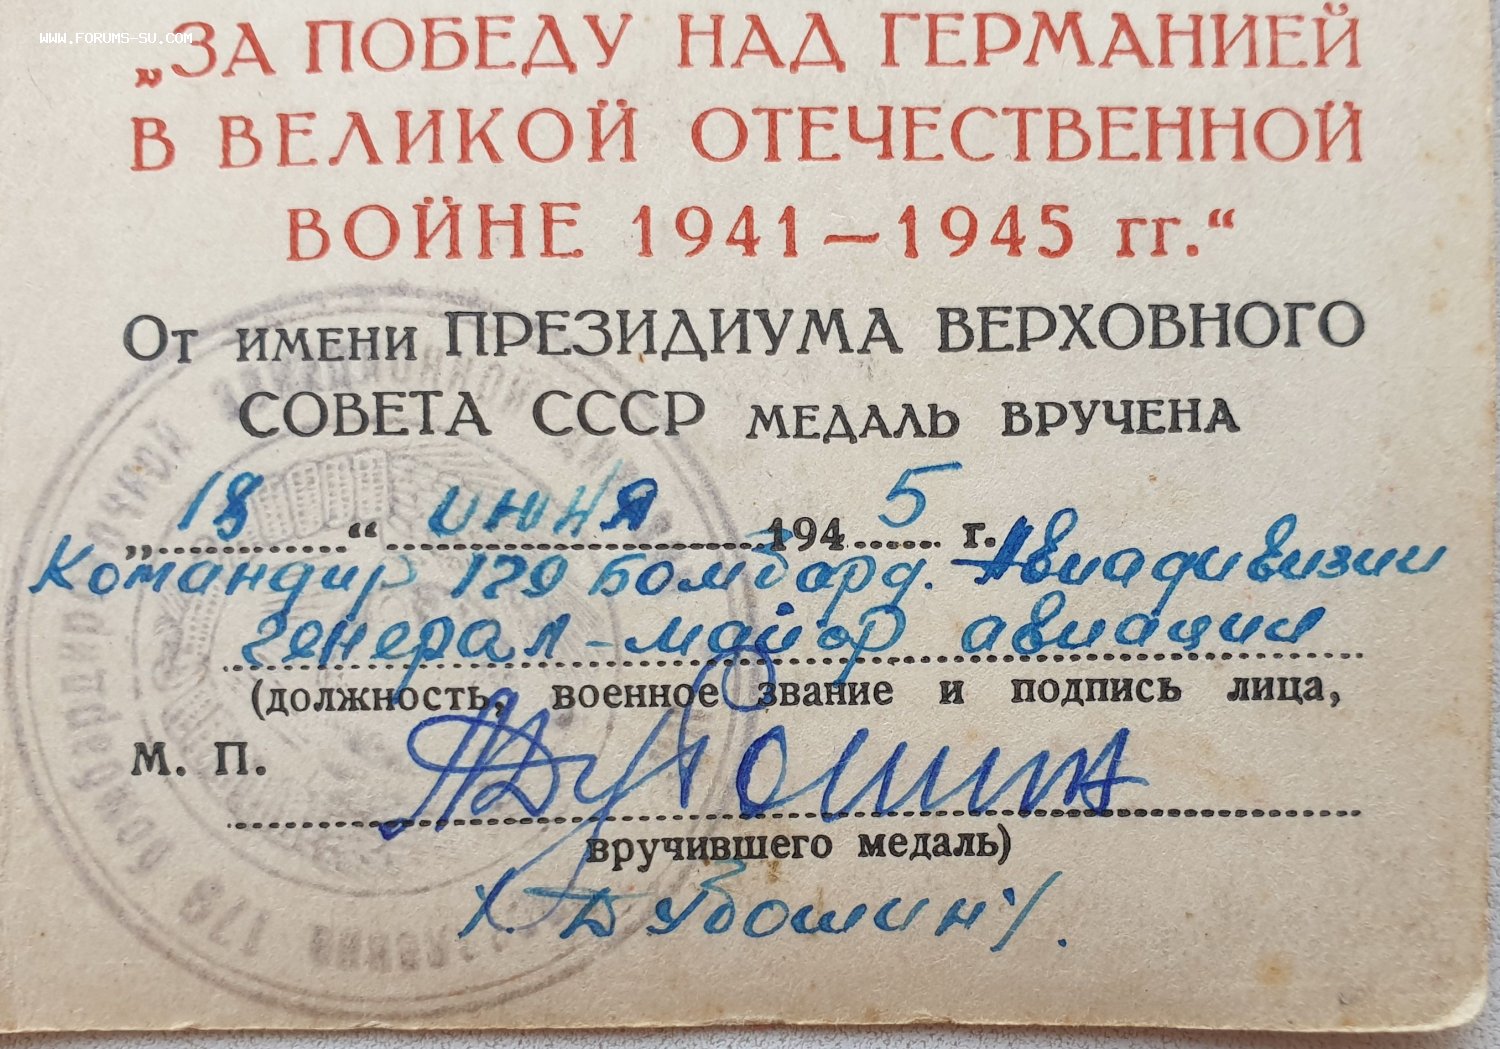 WWW.FORUMS-SU.COM
„ЗА ПОБЕДУ НАД ГЕРМАНИЕЙ
В ВЕЛИКОЙ ОТЕЧЕСТВЕННОЙ
ВОЙНЕ 1941—1945 гг.“
От имени ПРЕЗИДИУМА ВЕРХОВНОГО
СОВЕТА СССР МЕДАЛЬ ВРУЧЕНА
„18“ июня 1945 г.
Командир 179 Бомбард. Авиадивизии
генерал-майор авиации
(должность, военное звание и подпись лица,
М. П.
Дубошин
вручившего медаль)
/. Дубошин/.